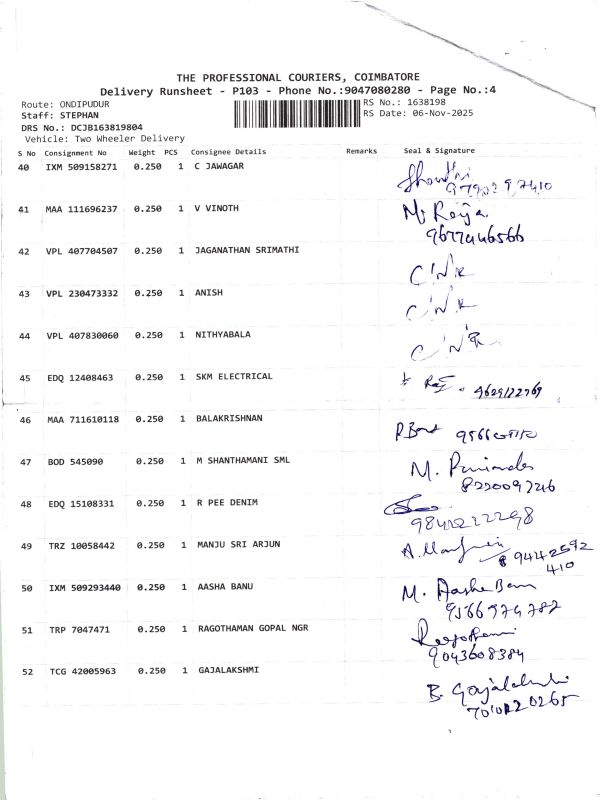 THE PROFESSIONAL COURIERS, COIMBATORE
Delivery Runsheet - P103 - Phone No.:9047080280 - Page No.:4
Route: ONDIPUDUR RS No.: 1638198
Staff: STEPHAN RS Date: 06-Nov-2025
DRS No.: DCJB163819804
Vehicle: Two Wheeler Delivery
S No Consignment No Weight PCS Consignee Details Remarks Seal & Signature
40 IXM 509158271 0.250 1 C JAWAGAR
41 MAA 111696237 0.250 1 V VINOTH
9677446566
42 VPL 407704507 0.250 1 JAGANATHAN SRIMATHI
C/N/R
43 VPL 230473332 0.250 1 ANISH
C/N/R
44 VPL 407830060 0.250 1 NITHYABALA
C/N/R
45 EDQ 12408463 0.250 1 SKM ELECTRICAL
9629122769
46 MAA 711610118 0.250 1 BALAKRISHNAN
47 BOD 545090 0.250 1 M SHANTHAMANI SML
M.
8220097246
48 EDQ 15108331 0.250 1 R PEE DENIM
49 TRZ 10058442 0.250 1 MANJU SRI ARJUN
9442592
410
50 IXM 509293440 0.250 1 AASHA BANU
M. Aasha Banu
9566974782
51 TRP 7047471 0.250 1 RAGOTHAMAN GOPAL NGR
9043608384
52 TCG 42005963 0.250 1 GAJALAKSHMI
B. Gajalakshmi